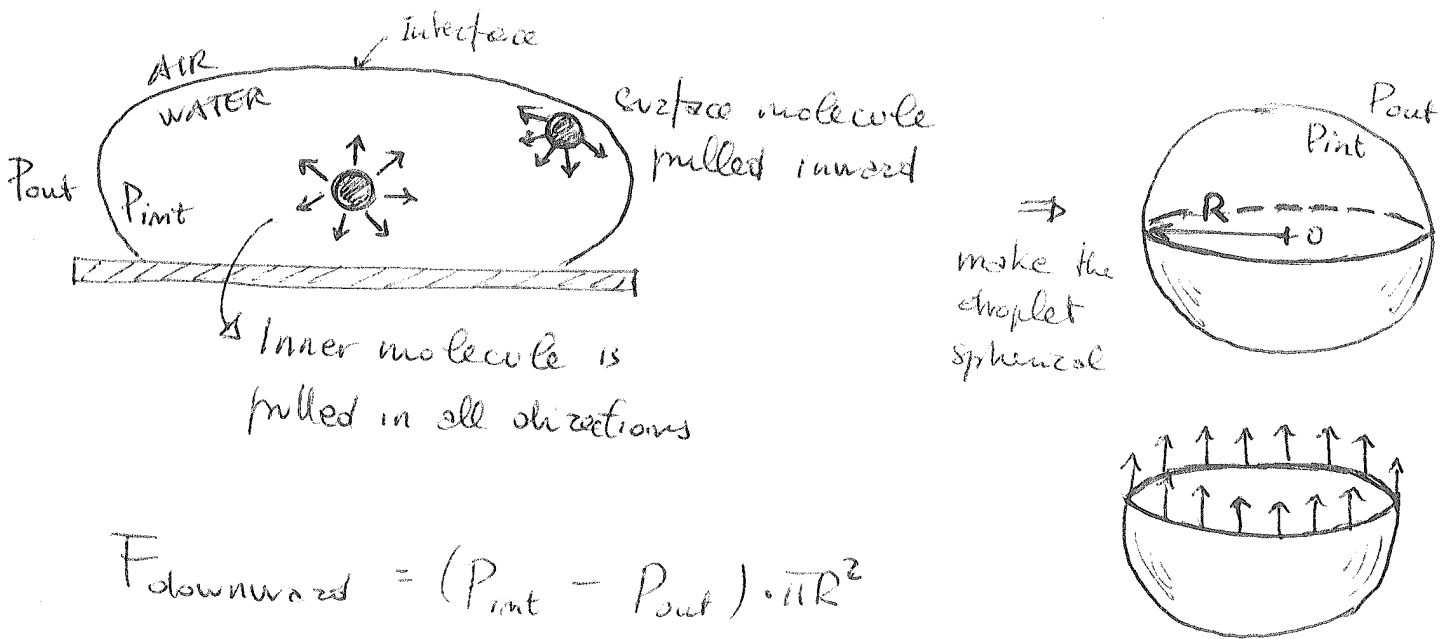 Interface
AIR
WATER
Surface molecule
pulled inward
Pout
Pint
Inner molecule is
pulled in all directions
⇒
make the
droplet
spherical
Pout
Pint
R
O
Fdownward = (Pint - Pout) . πR²